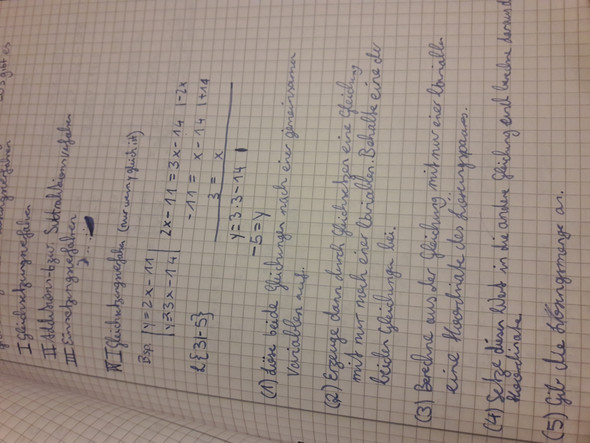 I Gleichsetzungsverfahren
II Additions- bzw. Subtraktionsverfahren
III Einsetzungsverfahren
IV I Gleichsetzungsverfahren (nur wenn y gleich ist)
Bsp. |y=2x-11|
|y=3x-14|
2x-11=3x-14 |-2x
-11= x-14 |+14
3 = x
y=3·3-14
-5=y
L{3|-5}
(1) Löse beide Gleichungen nach einer gemeinsamen
Variablen auf.
(2) Erzeuge dann durch Gleichsetzen eine Gleichung
mit nur noch einer Variablen. Behalte eine der
beiden Gleichungen bei.
(3) Berechne aus der Gleichung mit nur einer Variablen
eine Koordinate des Lösungspaars.
(4) Setze diesen Wert in die andere Gleichung und berechne daraus d
Koordinate.
(5) Gib die Lösungsmenge an.